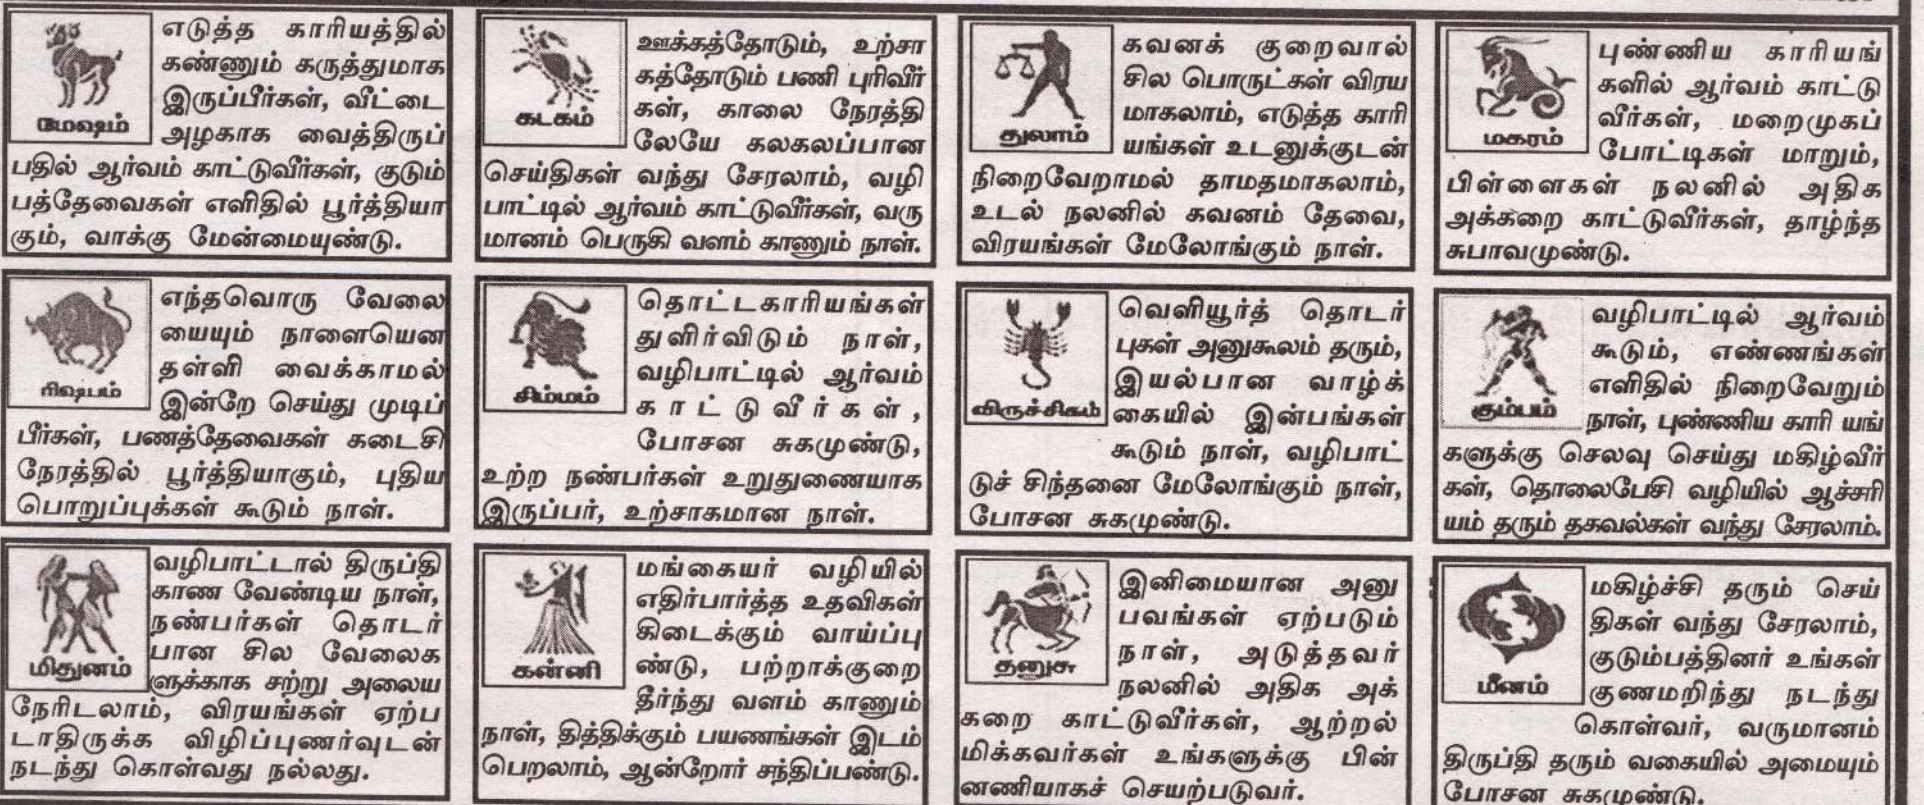 எடுத்த காரியத்தில்
கண்ணும் கருத்துமாக
இருப்பீர்கள், வீட்டை
அழகாக வைத்திருப்
மேஷம்
பதில் ஆர்வம் காட்டுவீர்கள், குடும்
பத்தேவைகள் எளிதில் பூர்த்தியா
கும், வாக்கு மேன்மையுண்டு.
எந்தவொரு வேலை
யையும் நாளையென
தள்ளி வைக்காமல்
ரிஷபம்
இன்றே செய்து முடிப்
பீர்கள், பணத்தேவைகள் கடைசி
நேரத்தில் பூர்த்தியாகும், புதிய
பொறுப்புக்கள் கூடும் நாள்.
வழிபாட்டால் திருப்தி
காண வேண்டிய நாள்,
நண்பர்கள் தொடர்
பான சில வேலைக
மிதுனம்
ளுக்காக சற்று அலைய
நேரிடலாம், விரயங்கள் ஏற்ப
டாதிருக்க விழிப்புணர்வுடன்
நடந்து கொள்வது நல்லது.
ஊக்கத்தோடும், உற்சா
கத்தோடும் பணி புரிவீர்
கள், காலை நேரத்தி
கடகம்
லேயே கலகலப்பான
செய்திகள் வந்து சேரலாம், வழி
பாட்டில் ஆர்வம் காட்டுவீர்கள், வரு
மானம் பெருகி வளம் காணும் நாள்.
தொட்டகாரியங்கள்
துளிர்விடும் நாள்,
வழிபாட்டில் ஆர்வம்
சிம்மம்
காட்டுவீர்கள்,
போசன சுகமுண்டு,
உற்ற நண்பர்கள் உறுதுணையாக
இருப்பர், உற்சாகமான நாள்.
மங்கையர் வழியில்
எதிர்பார்த்த உதவிகள்
கிடைக்கும் வாய்ப்பு
ண்டு, பற்றாக்குறை
கன்னி
தீர்ந்து வளம் காணும்
நாள், தித்திக்கும் பயணங்கள் இடம்
பெறலாம், ஆன்றோர் சந்திப்பண்டு.
கவனக் குறைவால்
சில பொருட்கள் விரய
மாகலாம், எடுத்த காரி
துலாம்
யங்கள் உடனுக்குடன்
நிறைவேறாமல் தாமதமாகலாம்,
உடல் நலனில் கவனம் தேவை,
விரயங்கள் மேலோங்கும் நாள்.
வெளியூர்த் தொடர்
புகள் அனுகூலம் தரும்,
இயல்பான வாழ்க்
விருச்சிகம்
கையில் இன்பங்கள்
கூடும் நாள், வழிபாட்
டுச் சிந்தனை மேலோங்கும் நாள்,
போசன சுகமுண்டு.
இனிமையான அனு
பவங்கள் ஏற்படும்
நாள், அடுத்தவர்
தனுசு
நலனில் அதிக அக்
கறை காட்டுவீர்கள், ஆற்றல்
மிக்கவர்கள் உங்களுக்கு பின்
னணியாகச் செயற்படுவர்.
புண்ணிய காரியங்
களில் ஆர்வம் காட்டு
வீர்கள், மறைமுகப்
மகரம்
போட்டிகள் மாறும்,
பிள்ளைகள் நலனில் அதிக
அக்கறை காட்டுவீர்கள், தாழ்ந்த
சுபாவமுண்டு.
வழிபாட்டில் ஆர்வம்
கூடும், எண்ணங்கள்
எளிதில் நிறைவேறும்
கும்பம்
நாள், புண்ணிய காரி யங்
களுக்கு செலவு செய்து மகிழ்வீர்
கள், தொலைபேசி வழியில் ஆச்சரி
யம் தரும் தகவல்கள் வந்து சேரலாம்.
மகிழ்ச்சி தரும் செய்
திகள் வந்து சேரலாம்,
குடும்பத்தினர் உங்கள்
மீனம்
குணமறிந்து நடந்து
கொள்வர், வருமானம்
திருப்தி தரும் வகையில் அமையும்
போசன சுகமுண்டு.